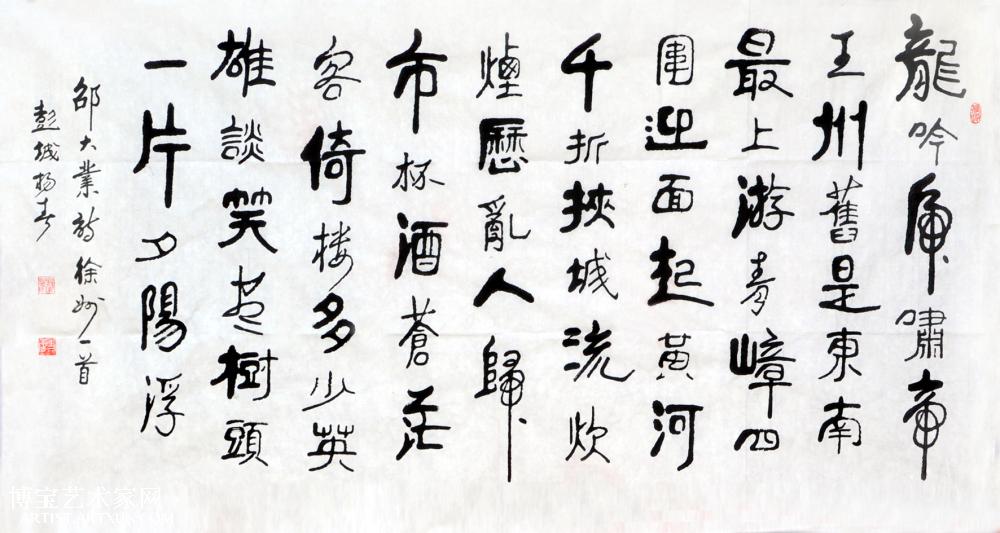 龍吟虎嘯帝
王州舊是東南
最上游青嶂四
圍迎面起黃河
千折挾城流炊
煙曆亂人歸
市杯酒蒼茫
客倚楼多少英
雄談笑尽樹頭
一片夕陽浮
邵大業詩徐州一首
彭城杨春
博宝艺术家网
ARTIST.ARTXUN.COM